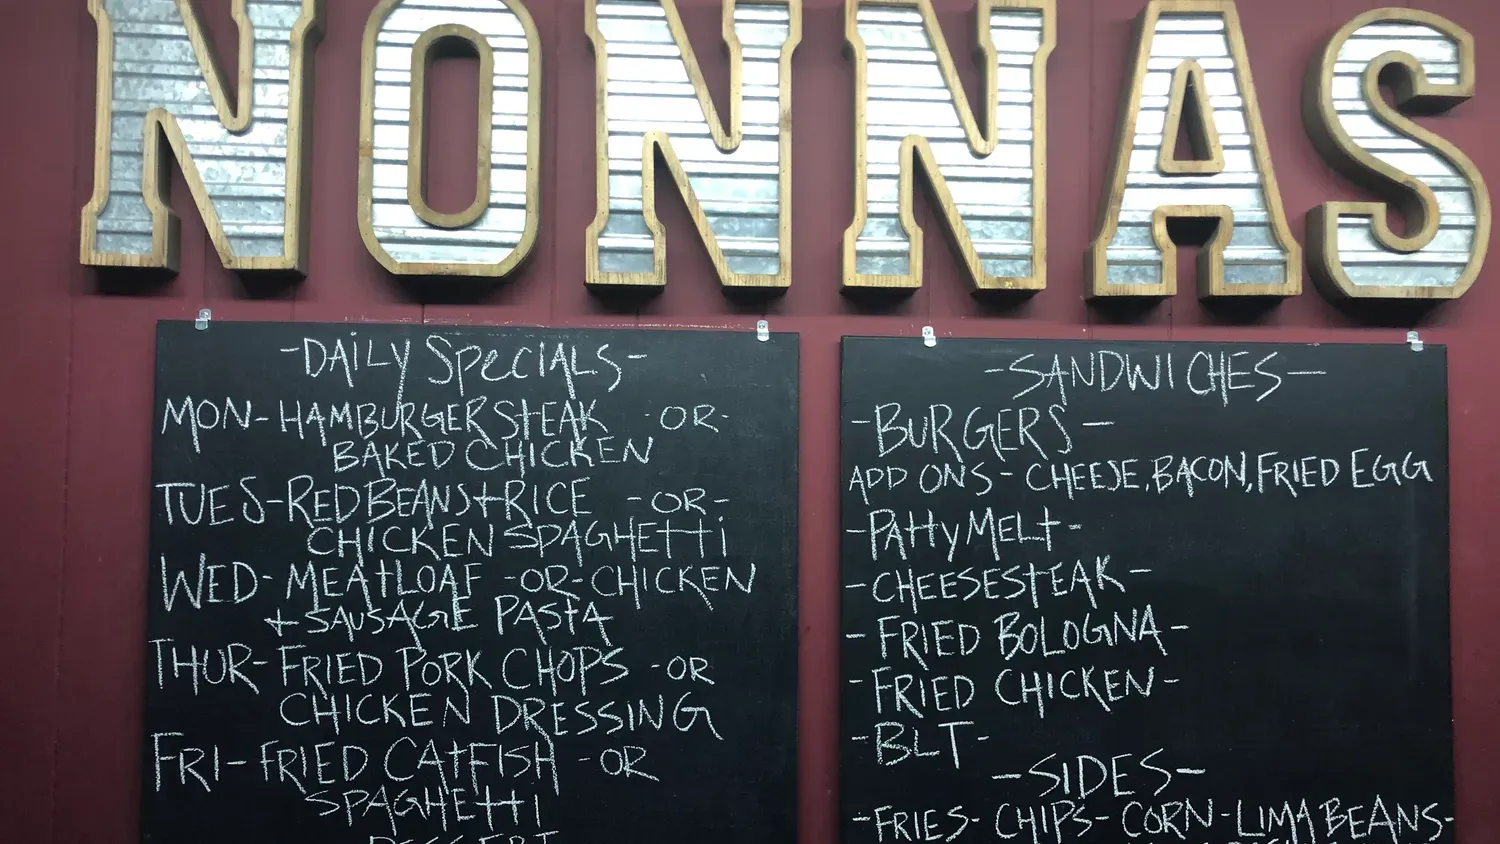 NONNAS
-DAILY SPECIALS-
MON- HAMBURGER STEAK -OR-
BAKED CHICKEN
TUES- RED BEANS + RICE -OR-
CHICKEN SPAGHETTI
WED- MEATLOAF -OR- CHICKEN
+ SAUSAGE PASTA
THUR- FRIED PORK CHOPS -OR
CHICKEN DRESSING
FRI- FRIED CATFISH -OR
SPAGHETTI
DESSERT
-SANDWICHES-
-BURGERS-
ADD ONS- CHEESE, BACON, FRIED EGG
-PATTY MELT-
-CHEESESTEAK-
- FRIED BOLOGNA-
-FRIED CHICKEN-
-BLT-
-SIDES-
-FRIES- CHIPS- CORN -LIMA BEANS-